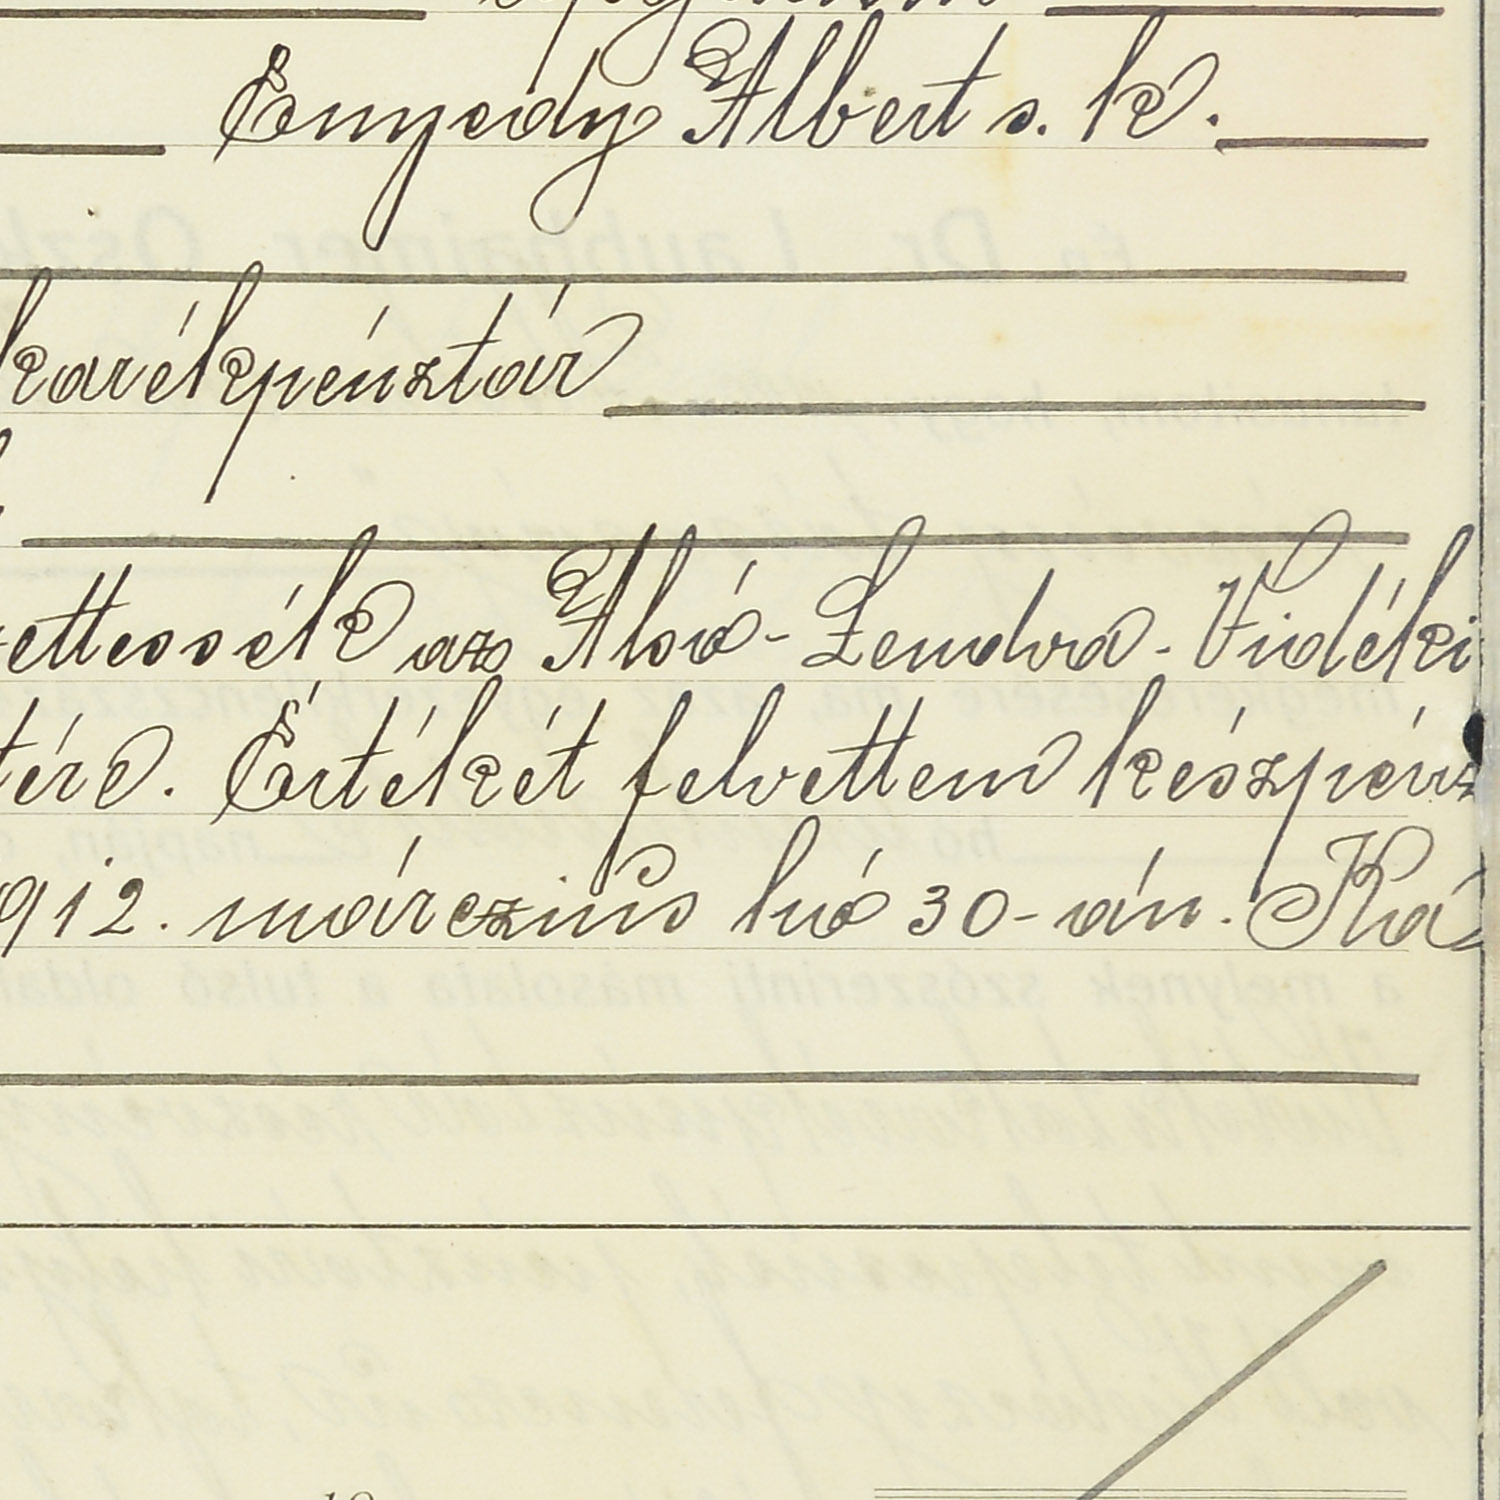 Enyedy Albert s. k.
karékpénztár
ettessék az Alsó-Lendva-Vidéki
tére. Értékét felvettem készpénz
912. márczius hó 30-án. Ká